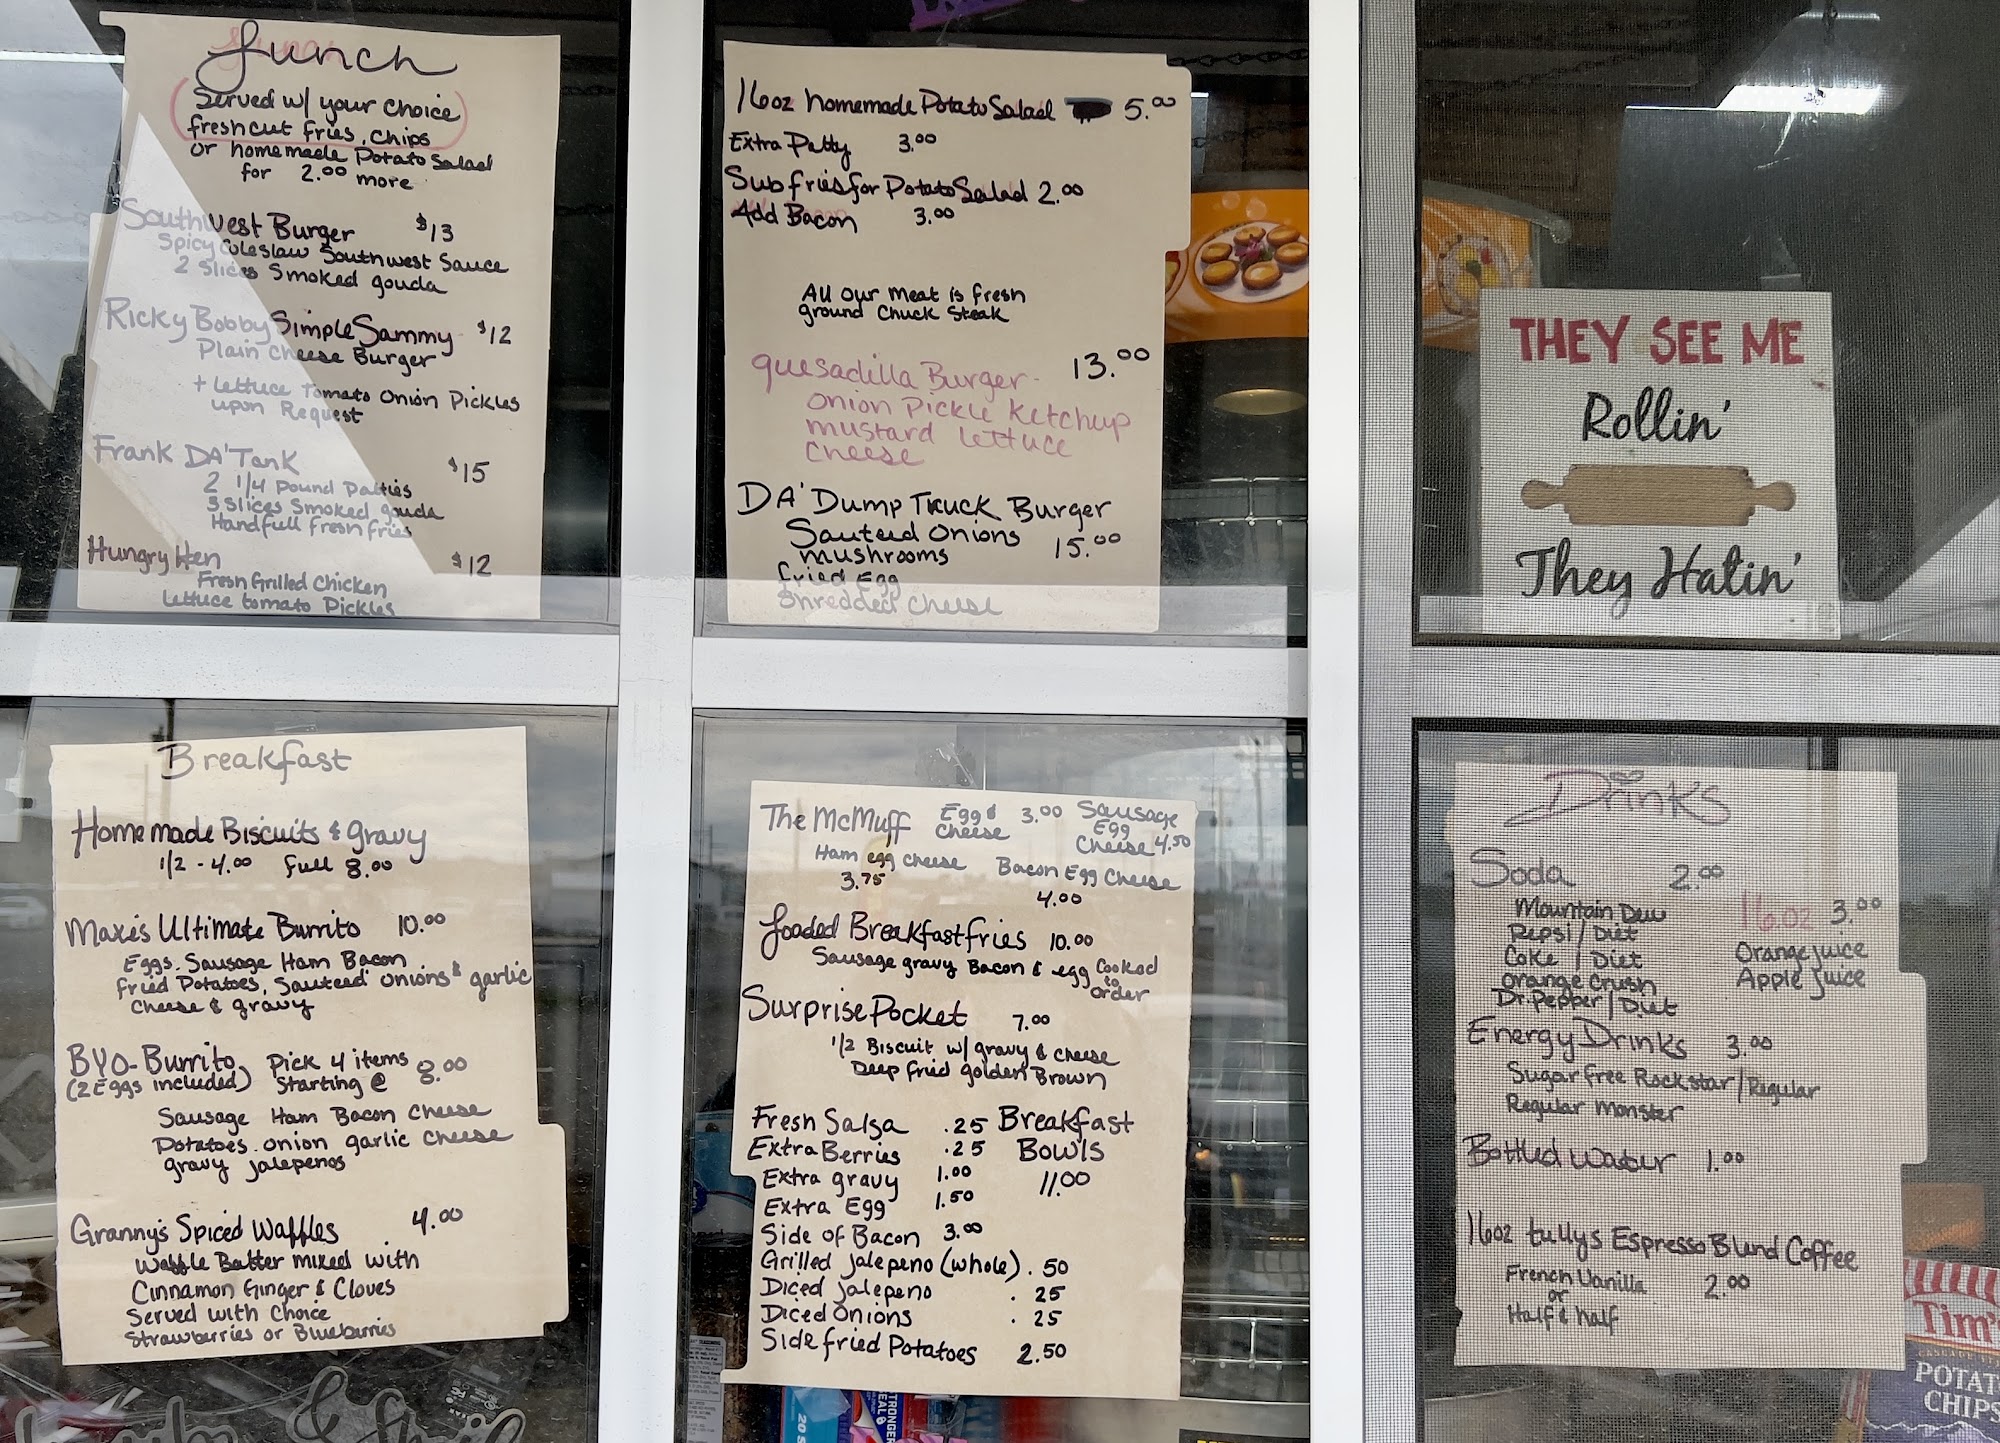 Lunch
Served w/ your choice
fresh cut fries, Chips
or homemade Potato Salad
for 2.00 more
Southwest Burger $13
Spicy Coleslaw Southwest Sauce
2 Slices Smoked gouda
Ricky Bobby Simple Sammy $12
Plain Cheese Burger
+ Lettuce Tomato Onion Pickles
upon Request
Frank DA' Tank $15
2 1/4 Pound Patties
3 Slices Smoked gouda
Handfull Fresh Fries
Hungry Hen $12
Fresh Grilled Chicken
Lettuce tomato Pickles
16oz homemade Potato Salad 5.00
Extra Patty 3.00
Sub fries for Potato Salad 2.00
Add Bacon 3.00
All our meat is fresh
ground Chuck Steak
Quesadilla Burger - 13.00
Onion Pickle Ketchup
mustard Lettuce
Cheese
DA' Dump Truck Burger
Sauteed Onions 15.00
mushrooms
fried Egg
Shredded Cheese
THEY SEE ME
Rollin'
They Hatin'
Breakfast
Homemade Biscuits & gravy
1/2 - 4.00 full 8.00
Maxie's Ultimate Burrito 10.00
Eggs. Sausage Ham Bacon
fried Potatoes, Sauteed onions & garlic
Cheese & gravy
BYO-Burrito Pick 4 items 8.00
(2 Eggs included) Starting @
Sausage Ham Bacon Cheese
Potatoes. onion garlic Cheese
gravy jalepenos
Granny's Spiced Waffles 4.00
Waffle Batter mixed with
Cinnamon Ginger & Cloves
Served with Choice
Strawberries or Blueberries
The McMuff Egg & Cheese 3.00 Sausage Egg Cheese 4.50
Ham egg cheese 3.75 Bacon Egg Cheese 4.00
Loaded Breakfast fries 10.00
Sausage gravy Bacon & egg Cooked to order
Surprise Pocket 7.00
1/2 Biscuit w/ gravy & cheese
Deep fried golden Brown
Fresh Salsa .25
Extra Berries .25
Extra gravy 1.00
Extra Egg 1.50
Side of Bacon 3.00
Grilled jalepeno (whole) .50
Diced jalepeno .25
Diced Onions .25
Side fried Potatoes 2.50
Breakfast
Bowls
11.00
Drinks
Soda 2.00
Mountain Dew
Pepsi / Diet
Coke / Diet
orange Crush
Dr. Pepper / Diet
16oz 3.00
Orange juice
Apple juice
Energy Drinks 3.00
Sugar Free Rockstar / Regular
Regular Monster
Bottled Water 1.00
16oz tullys Espresso Blend Coffee
French Vanilla 2.00
or
Half & half
Tim's
POTAT
CHIPS